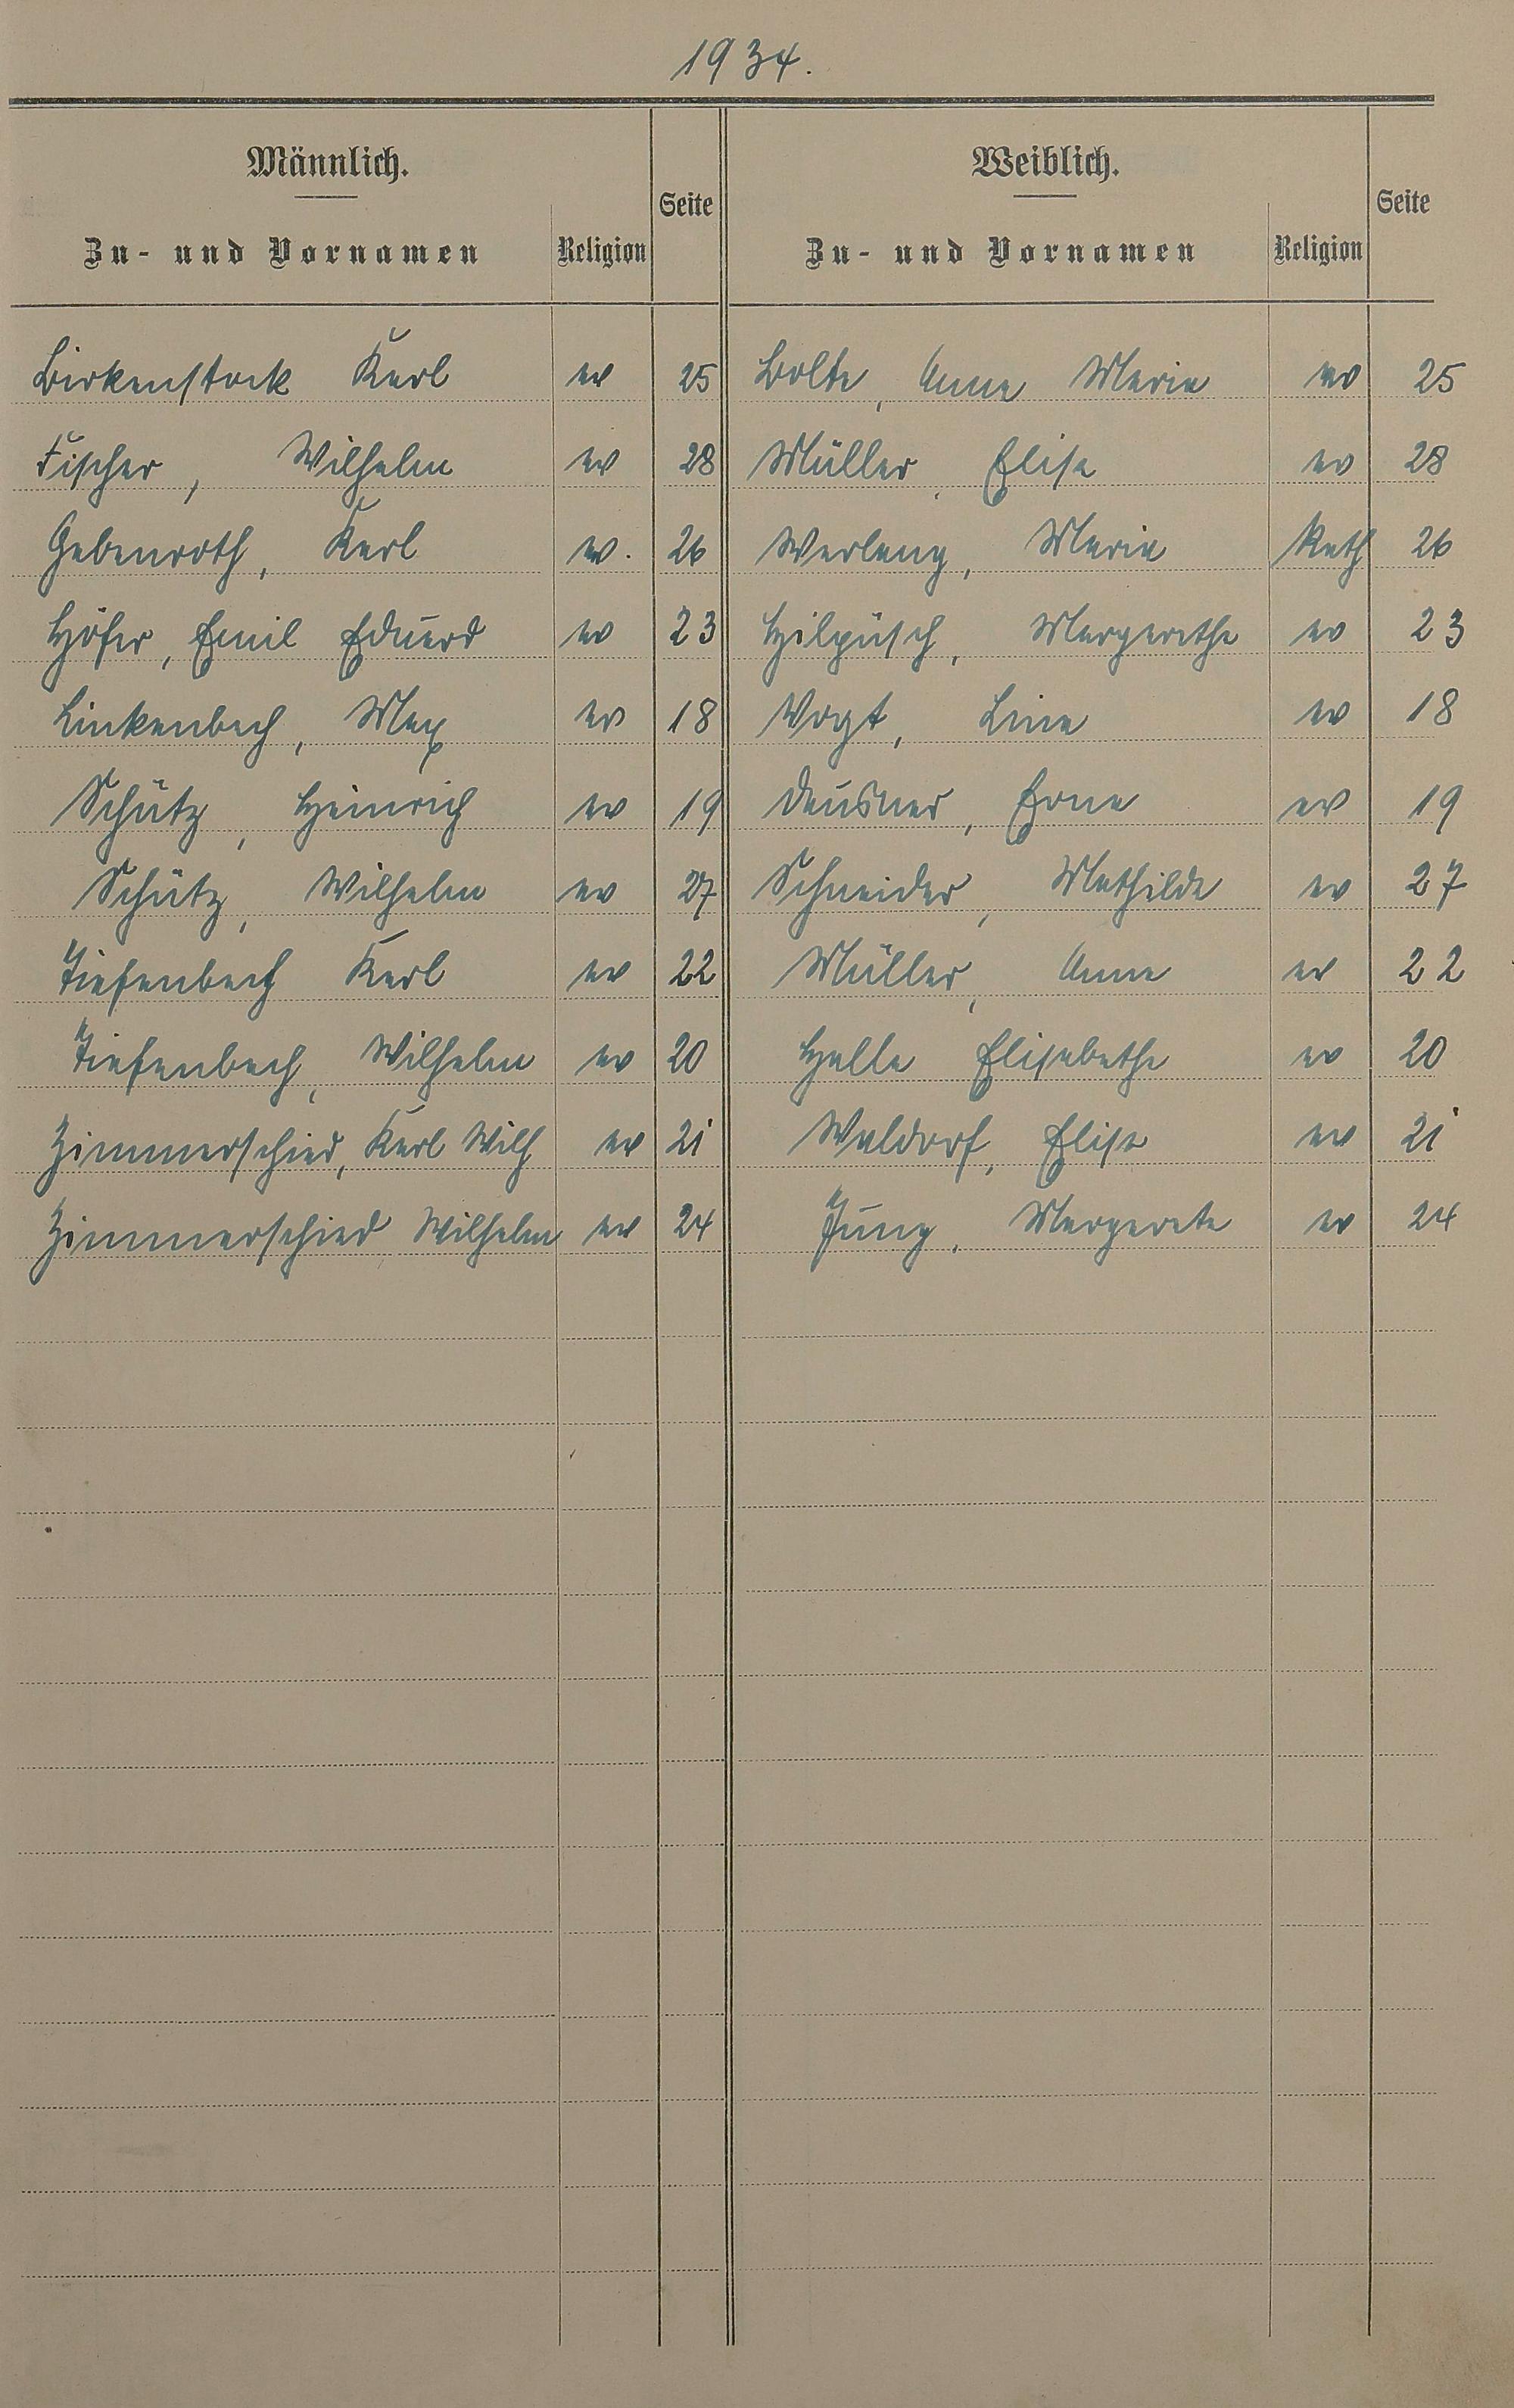 1934.
Männlich. Weiblich.
Seite Seite
Zu- und Vornamen Religion Zu- und Vornamen Religion
Birkenstock Karl ev 25 Bolte, Anna Maria ev 25
Fischer, Wilhelm ev 28 Müller, Elise ev 28
Gebenroth, Karl ev. 26 Werlang, Maria Kath 26
Höfer, Emil Eduard ev 23 Hilpüsch, Margarethe ev 23
Linkenbach, Max ev 18 Vogt, Lina ev 18
Schütz, Heinrich ev 19 Deusner, Erna ev 19
Schütz, Wilhelm ev 27 Schneider, Mathilde ev 27
Tiefenbach Karl ev 22 Müller, Anna ev 22
Tiefenbach, Wilhelm ev 20 Halle Elisabethe ev 20
Zimmerschied, Karl Wilh ev 21 Waldorf, Elise ev 21
Zimmerschied Wilhelm ev 24 Jung, Margareta ev 24